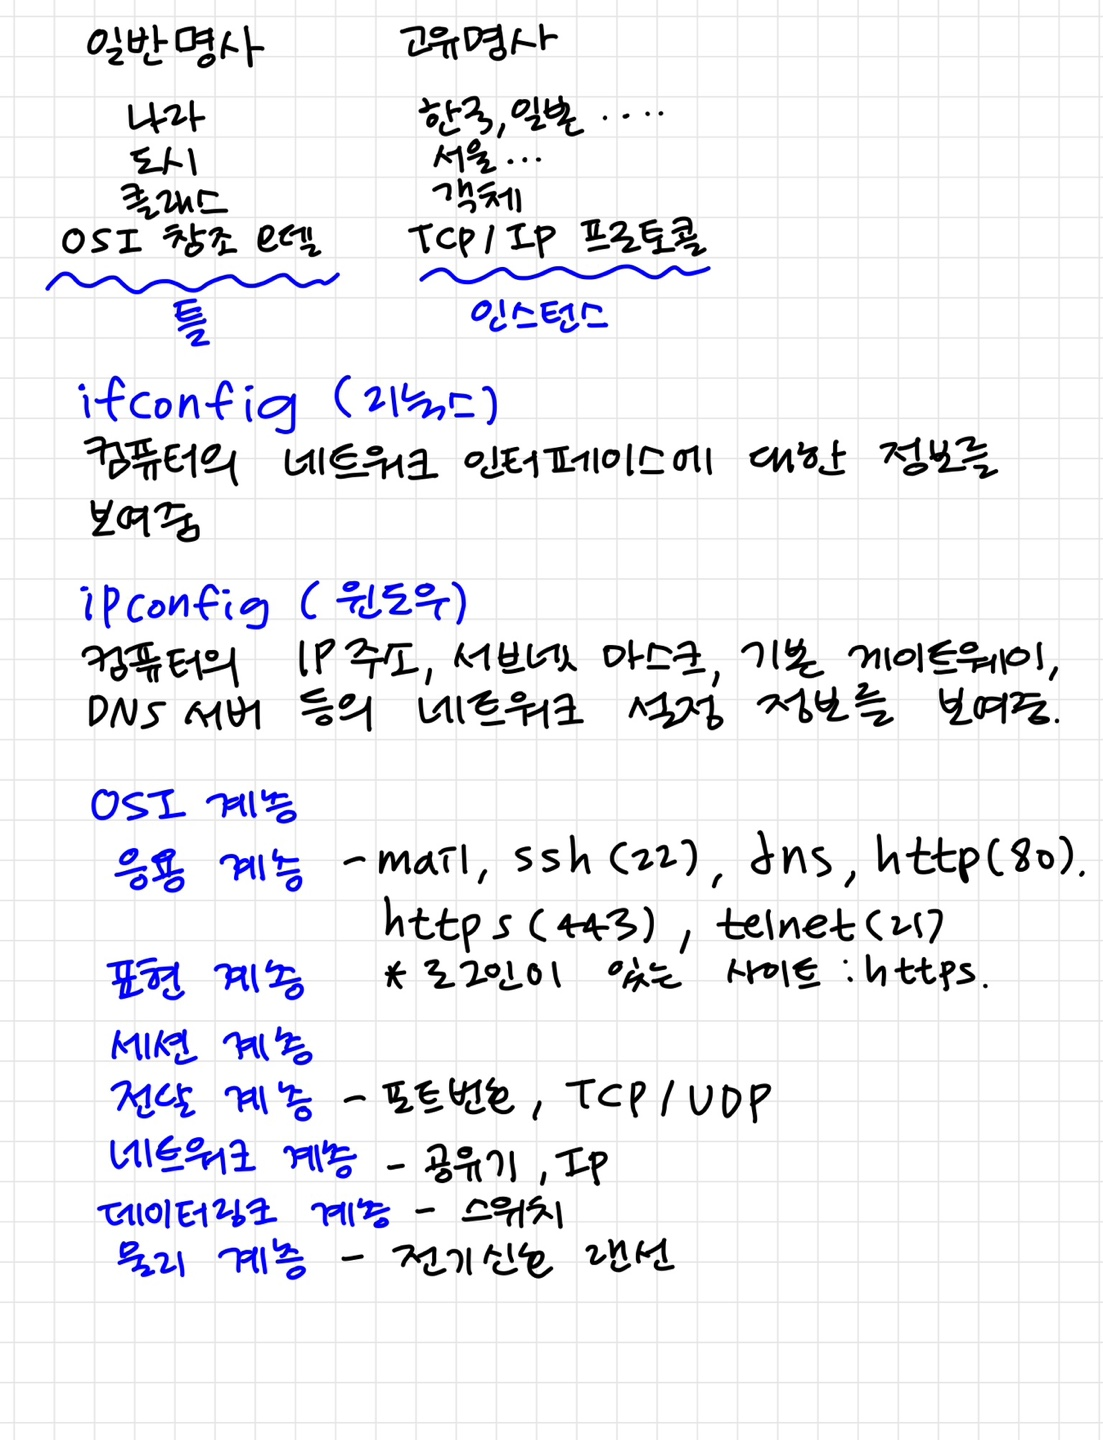 일반명사 고유명사
나라 한국, 일본 ....
도시 서울...
클래스 객체
OSI 참조 모델 TCP/IP 프로토콜
틀 인스턴스
ifconfig (리눅스)
컴퓨터의 네트워크 인터페이스에 대한 정보를
보여줌
ipconfig (윈도우)
컴퓨터의 IP 주소, 서브넷 마스크, 기본 게이트웨이,
DNS 서버 등의 네트워크 설정 정보를 보여줌.
OSI 계층
응용 계층 - mail, ssh (22), dns, http(80).
https (443), telnet(21)
표현 계층 * 로그인이 있는 사이트 : https.
세션 계층
전달 계층 - 포트번호, TCP/UDP
네트워크 계층 - 공유기, IP
데이터링크 계층 - 스위치
물리 계층 - 전기신호 랜선